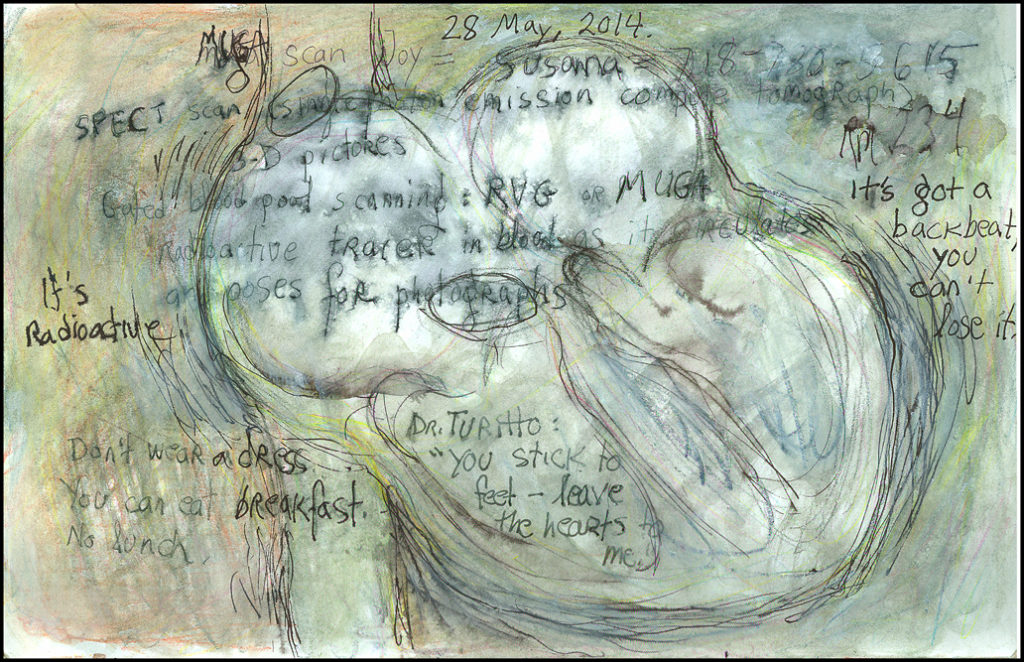 28 May, 2014.
MUGA scan Joy = Susana = 718-780-5615
SPECT scan (single photon emission compute tomograph)
3-D pictures
RM 234
Gated blood pool scanning: RVG or MUGA
Radioactive tracer in blood as it circulates
and poses for photographs
It's
Radioactive
It's got a
backbeat,
you
can't
lose it.
Don't wear a dress.
You can eat breakfast.
No lunch.
Dr. Turitto:
"You stick to
feet - leave
the hearts to
me."